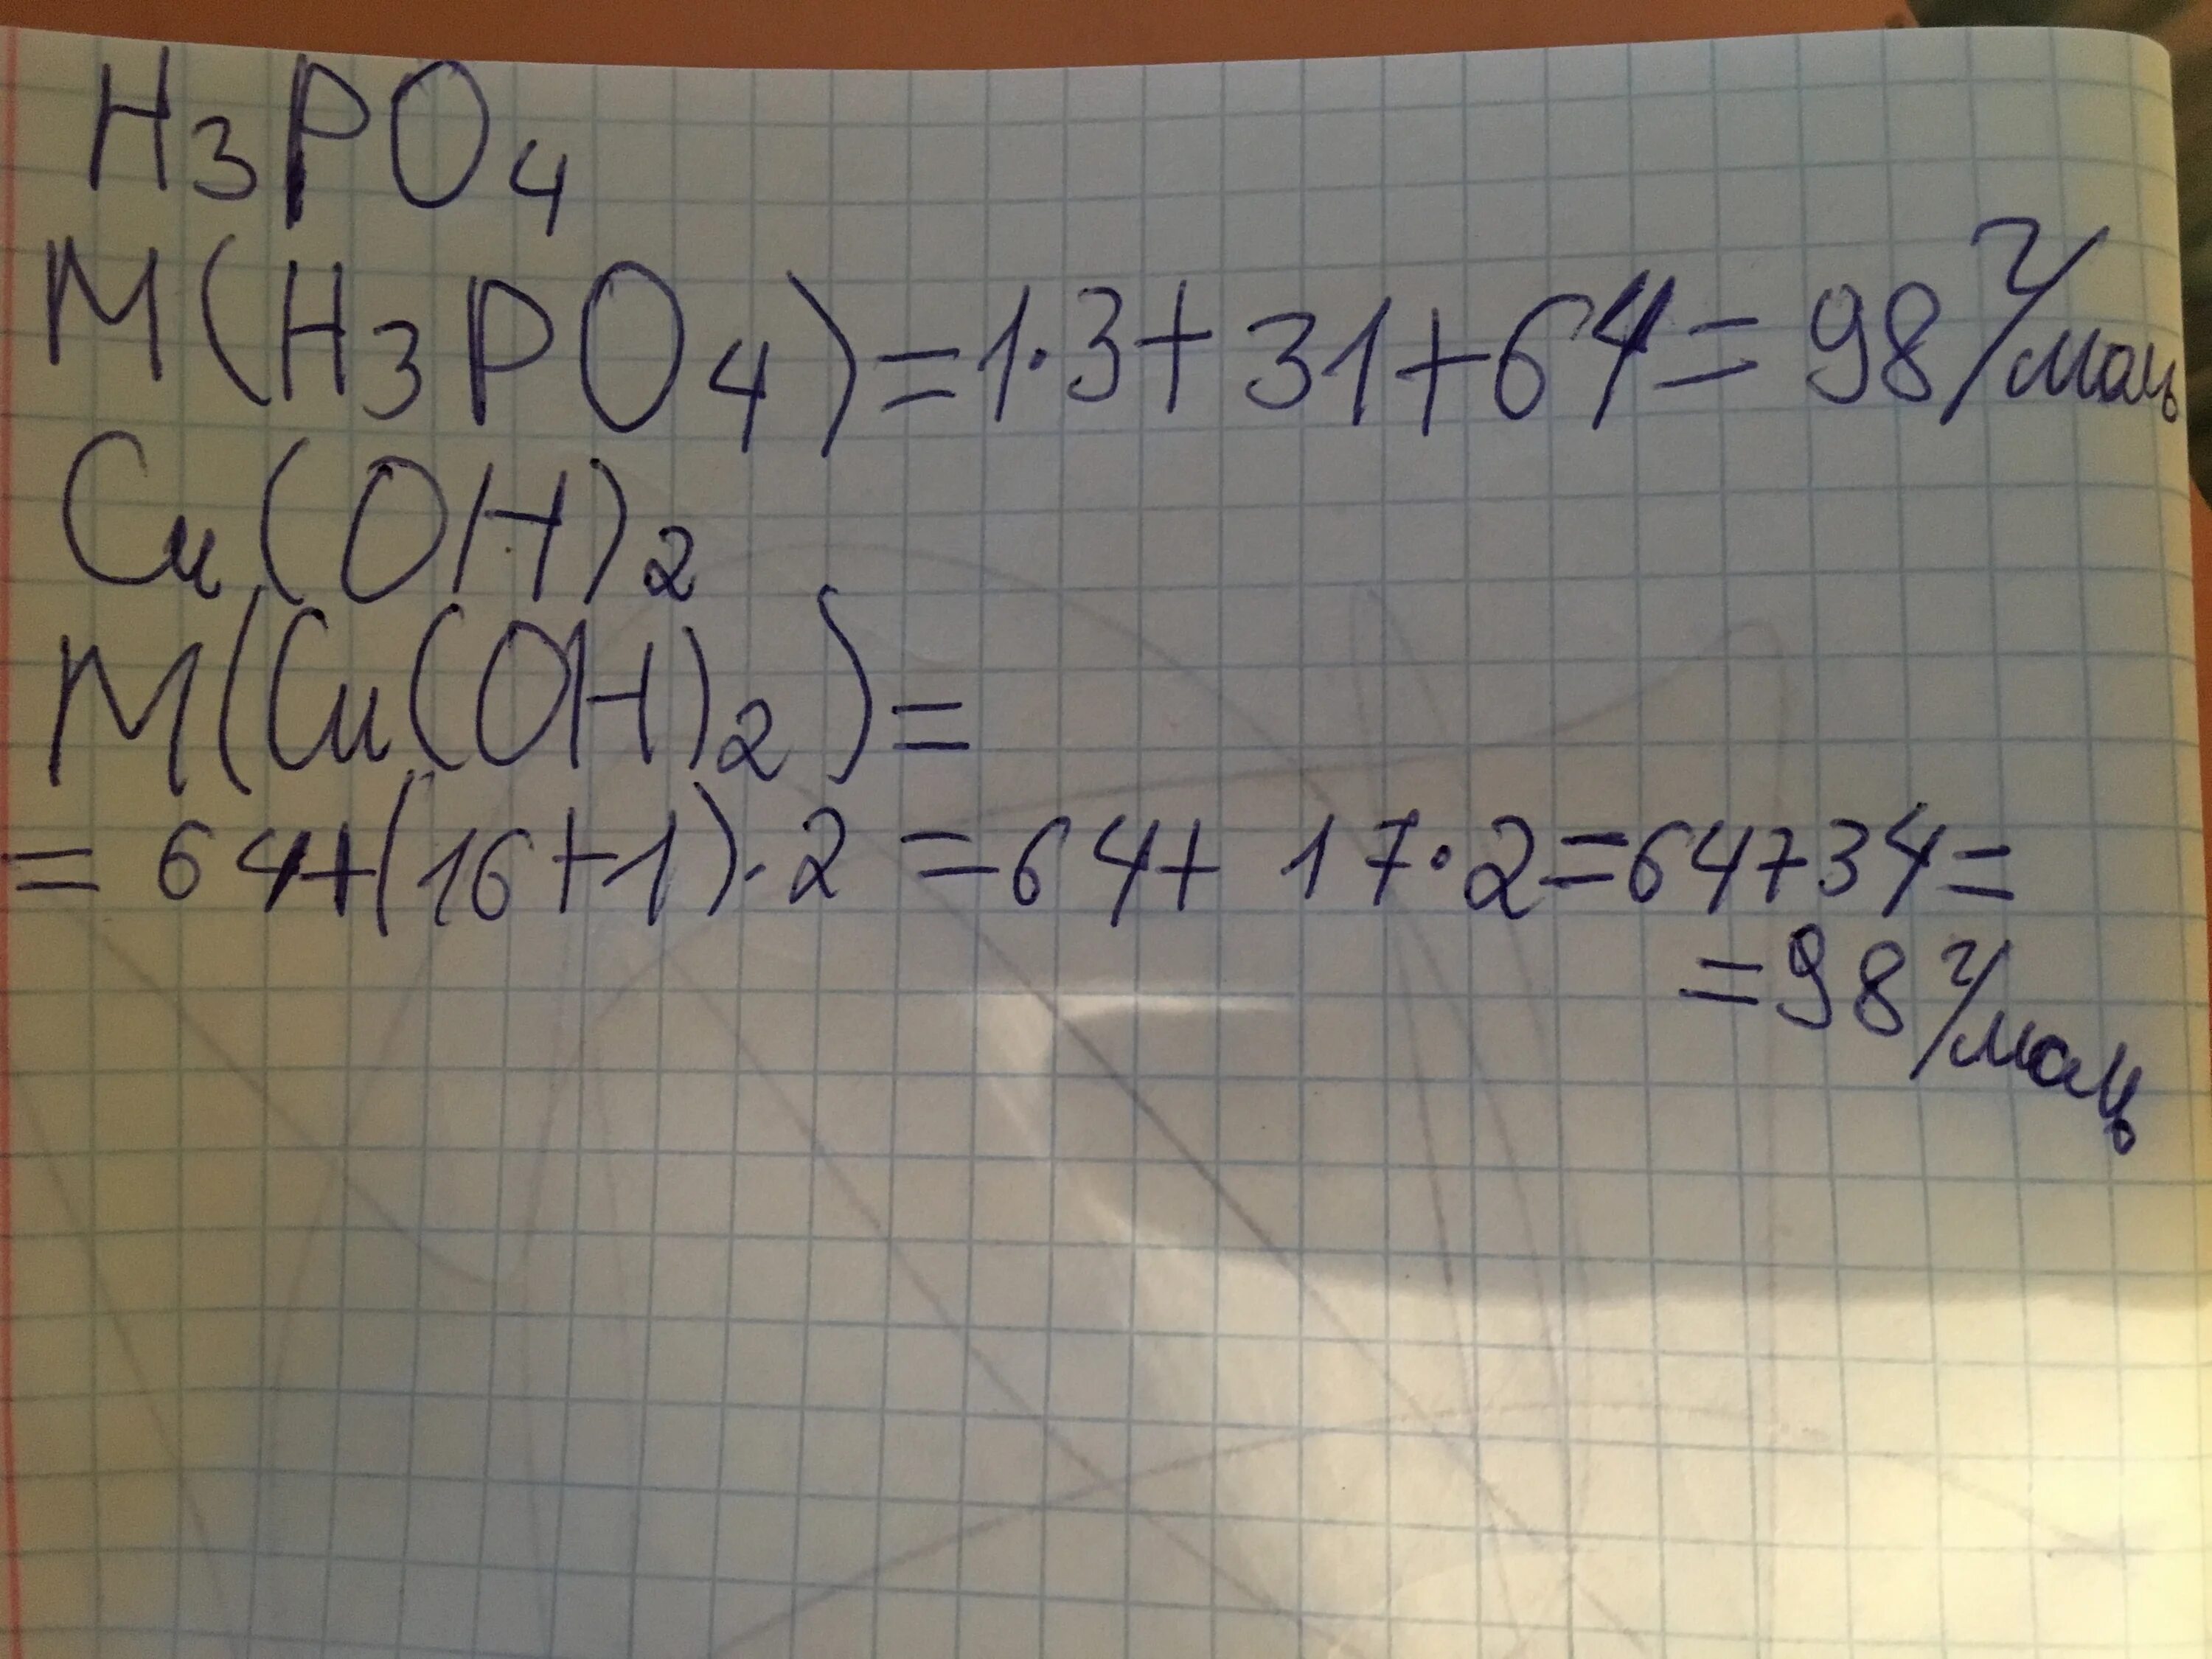 H₃PO₄
M(H₃PO₄)=1·3+31+64=98 г/моль
Cu(OH)₂
M(Cu(OH)₂)=
=64+(16+1)·2=64+17·2=64+34=
=98 г/моль